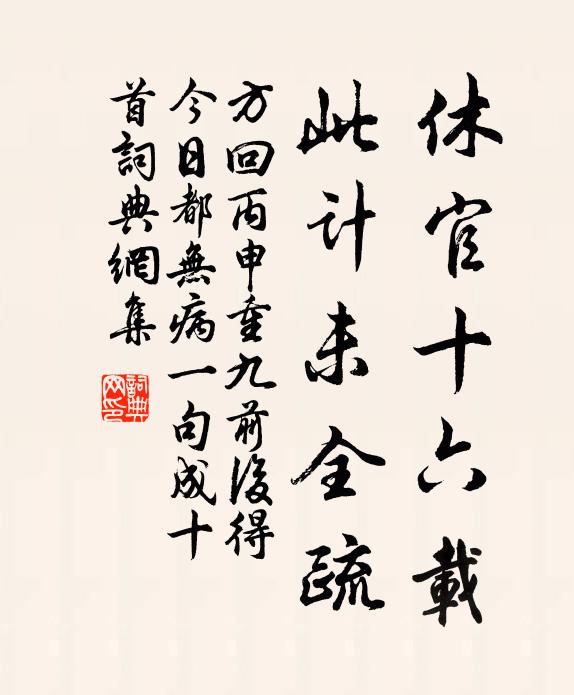 休官十六載
此計未全疏
方回丙申重九前後得
今日都無病一句成十
首詞典網集
詞典
网印